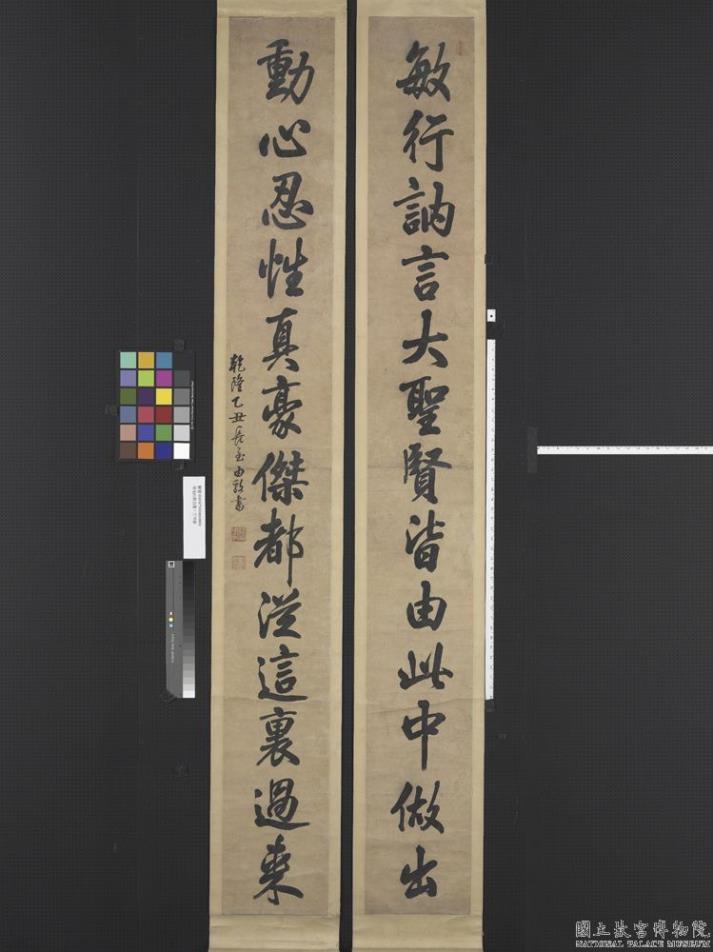 敏行訥言大聖賢皆由此中做出
動心忍性真豪傑都從這裏過來
乾隆乙丑長至由敦書
國立故宮博物院
NATIONAL PALACE MUSEUM